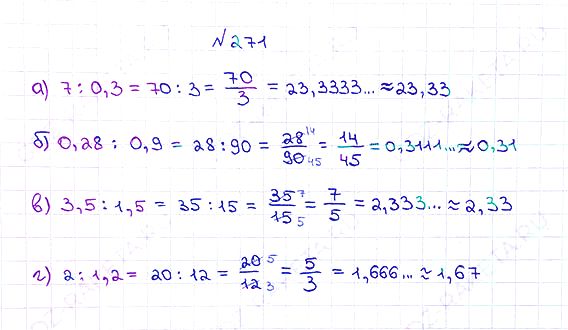 №271
а) 7 : 0,3 = 70 : 3 = 70/3 = 23,3333... ≈ 23,33
б) 0,28 : 0,9 = 28 : 90 = 28 14/90 45 = 14/45 = 0,3111... ≈ 0,31
в) 3,5 : 1,5 = 35 : 15 = 35 7/15 5 = 7/5 = 2,333... ≈ 2,33
г) 2 : 1,2 = 20 : 12 = 20 5/12 3 = 5/3 = 1,666... ≈ 1,67